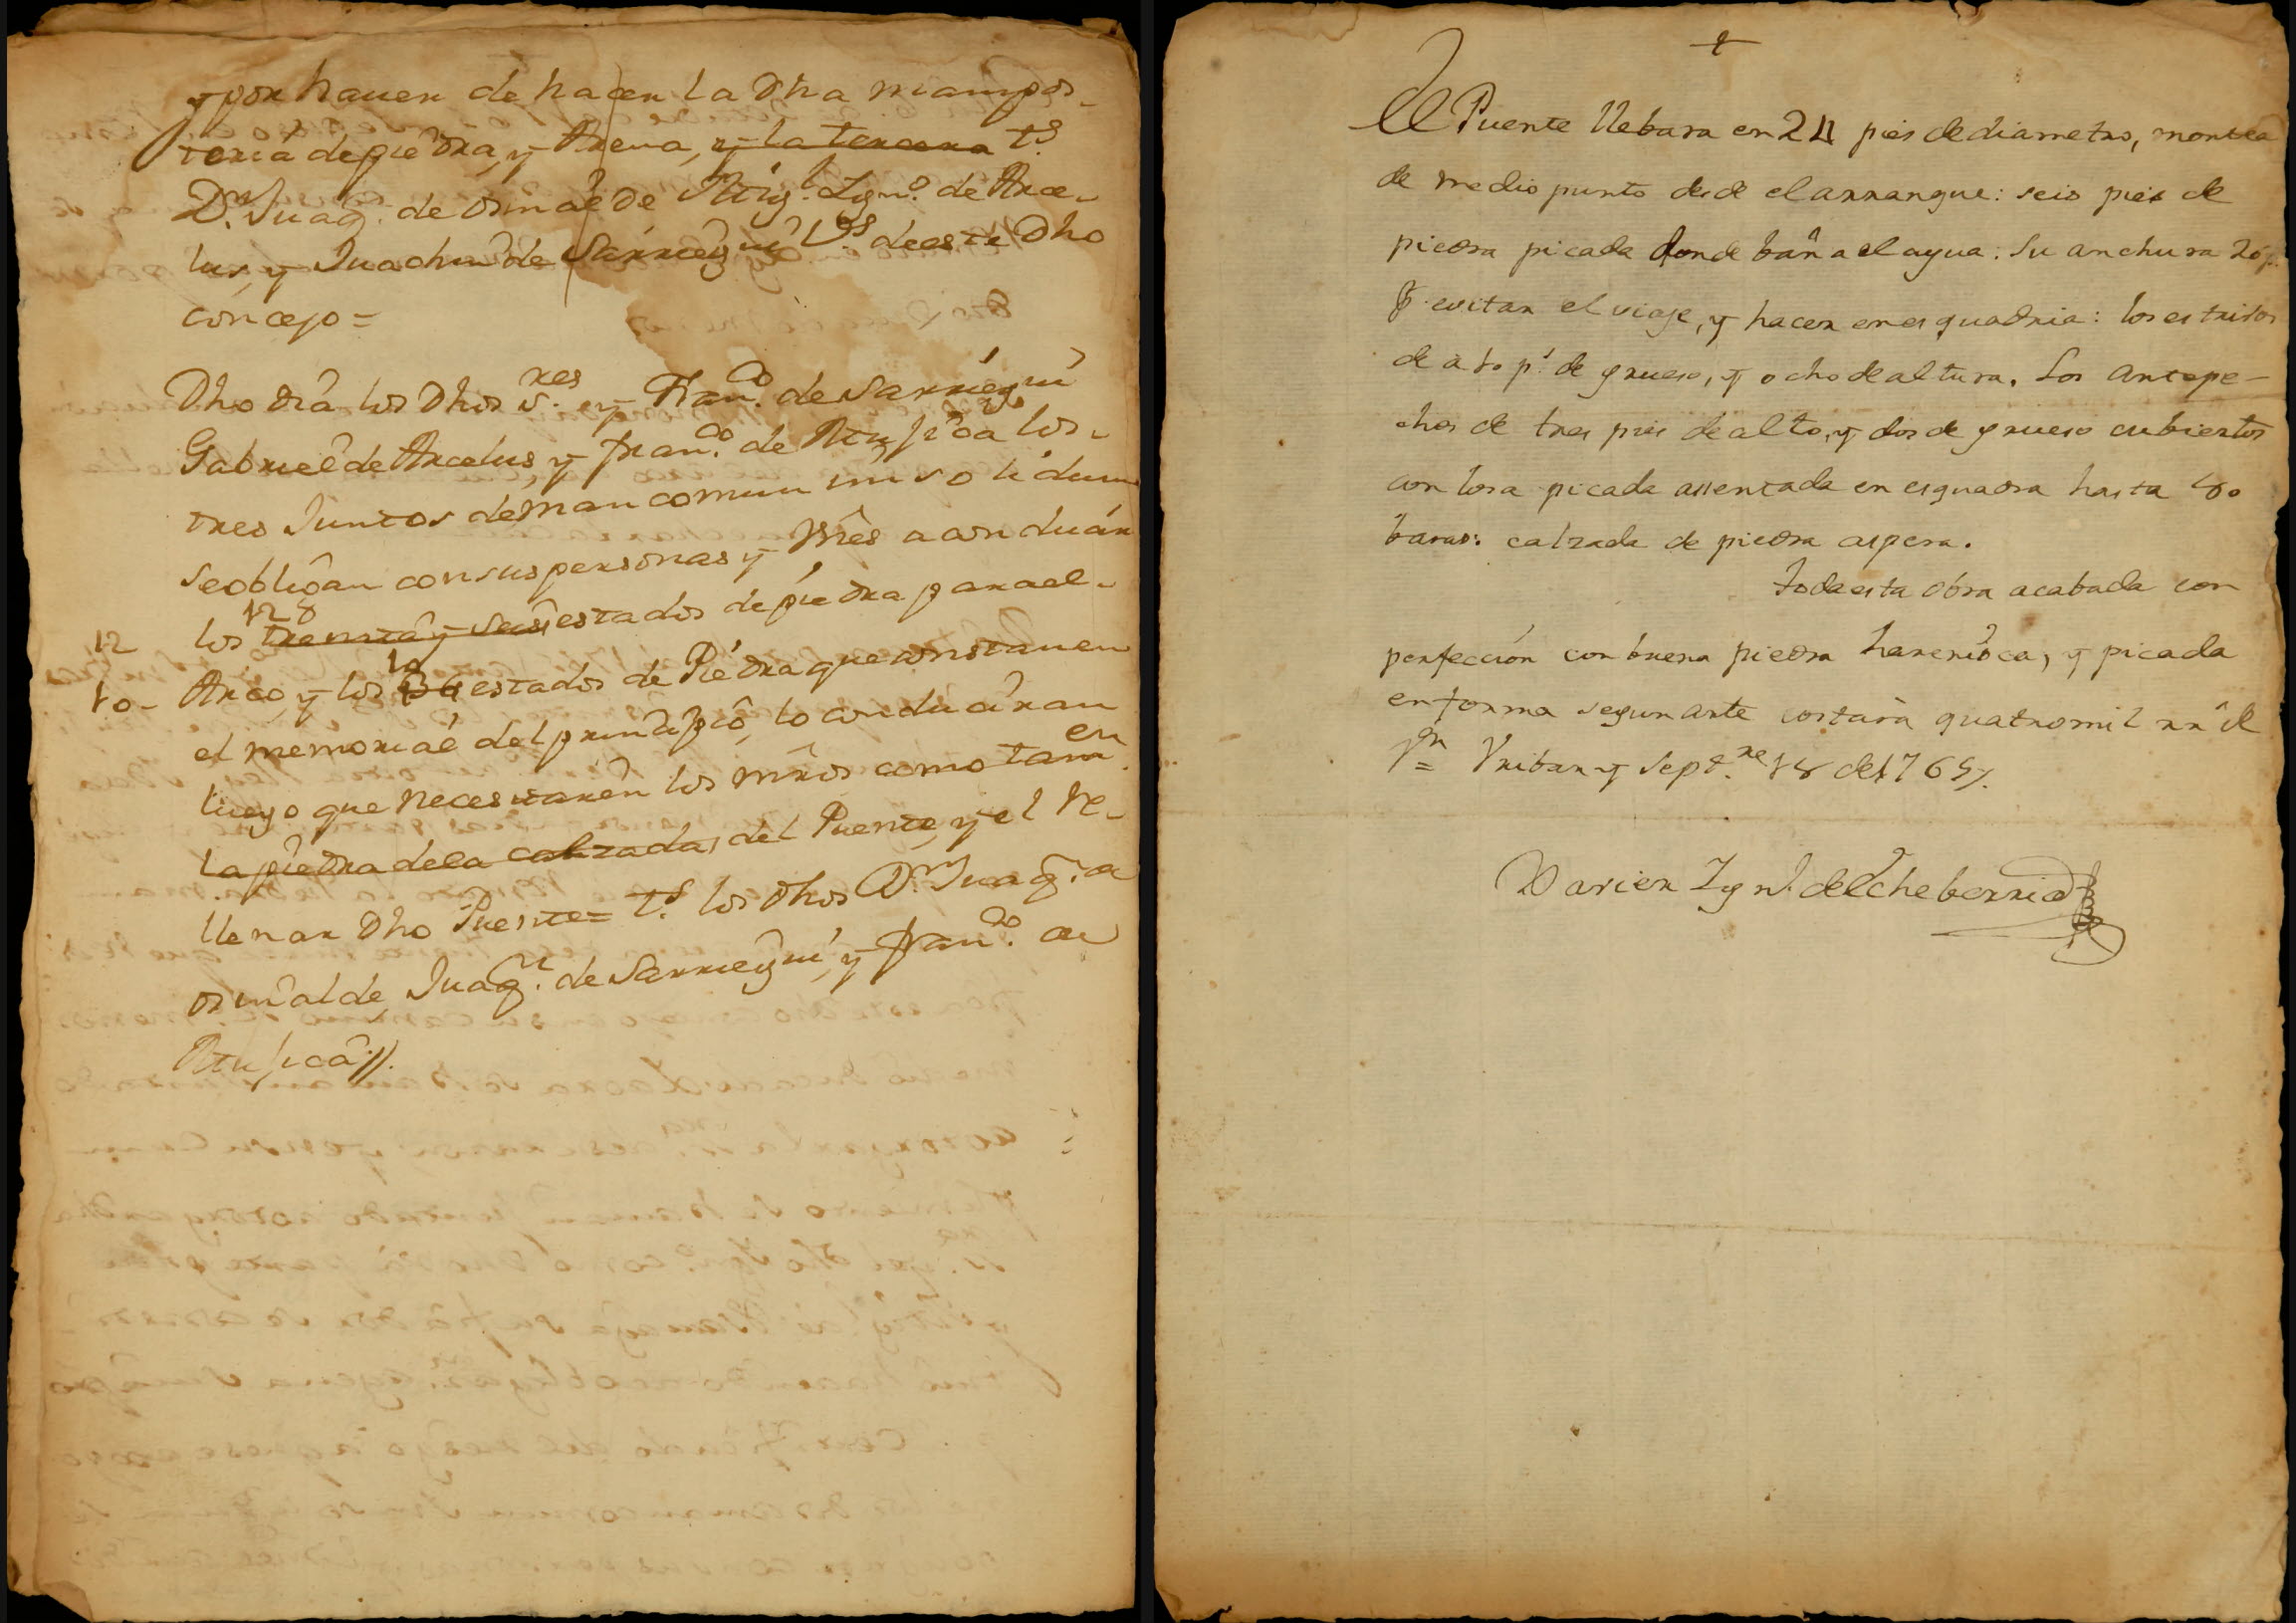 y por hauer de hacer la Dha mampos-
teria de piedra, y Arena, y la tercera t.s
D.n Juaq.n de ormaeᵈe Ign.o de Arce-
lus, y Juachin de Sarriegui V.s de este Dho
concejo =
Dho dia los Dhos S.res y Fran.co de Sarriegui
Gabriel de Arcelus, y Fran.co de los-
tres Juntos de man comun insolidum
se obligan con sus personas y vnes a conducir
los 12 treinta y seis estados de piedra para el-
12
Arco, y los 10 36 estados de Piedra que constan en
10-
el memorial del principio, lo conduciran
luego que necesitaren los mros como tam.en
la piedra de la calzada, del Puente, y el re-
llenar Dho Puente = t.s los Dhos D.n Juaq.n
ormalde, Juaq.n de Sarriegui, y Fran.co
+
El Puente llebara en 24 pies de diametro, montea
de medio punto desde el arranque: seis pies de
piedra picada donde baña el agua: Su anchura 20 p.
evitar el viaje, y hacer en esquadria: los estrivos
de a 10 p.s de grueso, y ocho de altura. Los antepe-
chos de tres pies de alto, y dos de grueso cubiertos
con losa picada assentada en esquadra hasta 80
baras: calzada de piedra aspera.
Toda esta obra acabada con
perfección con buena piedra harenisca, y picada
en forma segun arte costarà quatro mil rr.s de
V.n = Vribarry Sept.re 18 de 1765.
Xavier Ygn.o de Echeberria